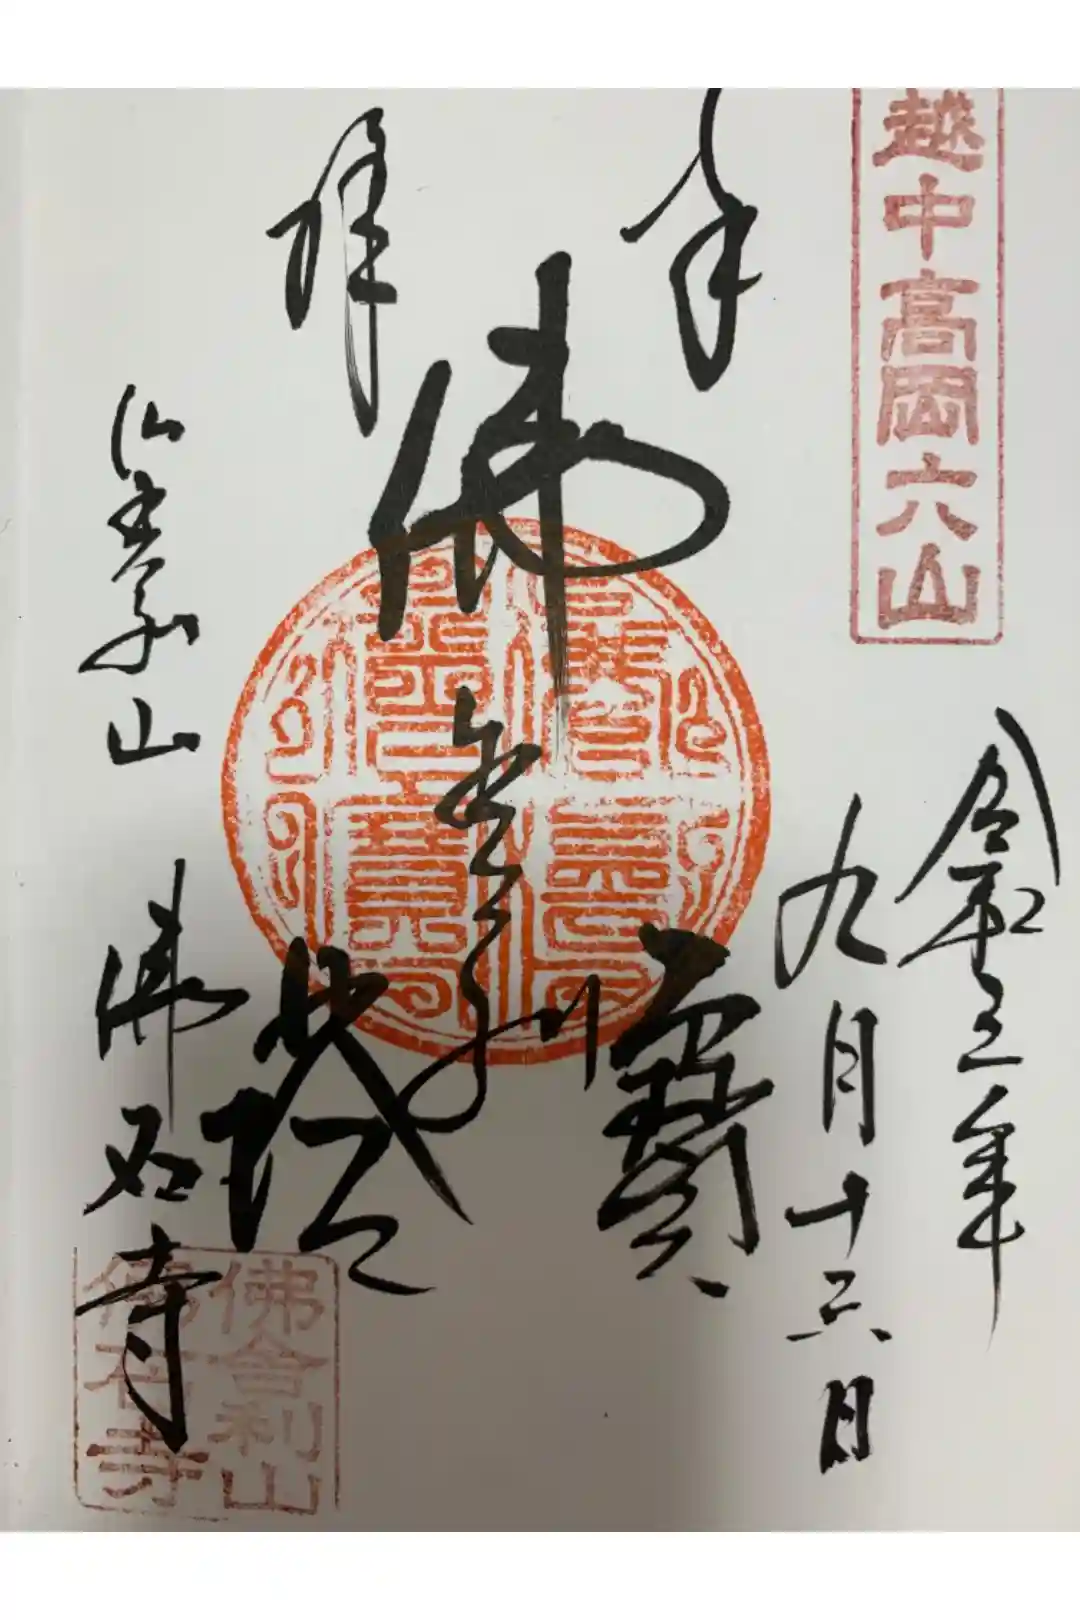 越中高岡六山
奉拝
令和五年
九月十六日
佛舎利
寶塔
仏舎利山
佛石寺
佛舎利山
佛石寺